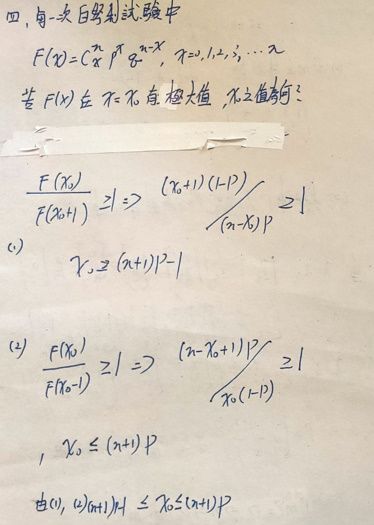 四、每一次白努利試驗中
F(x)=C^n_x p^x q^{n-x}, x=0,1,2,3,…n
若 F(x) 在 x=x₀ 有極大值, x₀之值為何?
F(x₀)/F(x₀+1) ≥1 ⇒ (x₀+1)(1-P)/(n-x₀)P ≥1
(1)
x₀ ≥ (n+1)P-1
(2) F(x₀)/F(x₀-1) ≥1 ⇒ (n-x₀+1)P/x₀(1-P) ≥1
, x₀ ≤ (n+1)P
由(1), (2)(n+1)P-1 ≤ x₀ ≤ (n+1)P